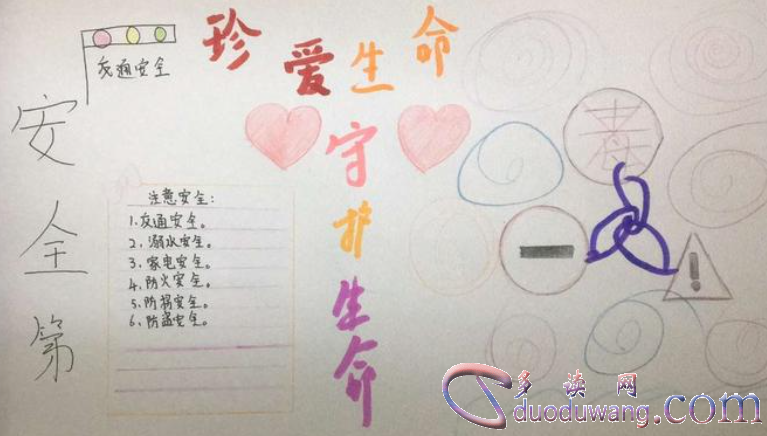 珍爱生命
交通安全
守护生命
安全第
注意安全:
1.交通安全。
2.溺水安全。
3.家电安全。
4.防火安全。
5.防拐安全。
6.防盗安全。
毒
多读网
duoduwang.com